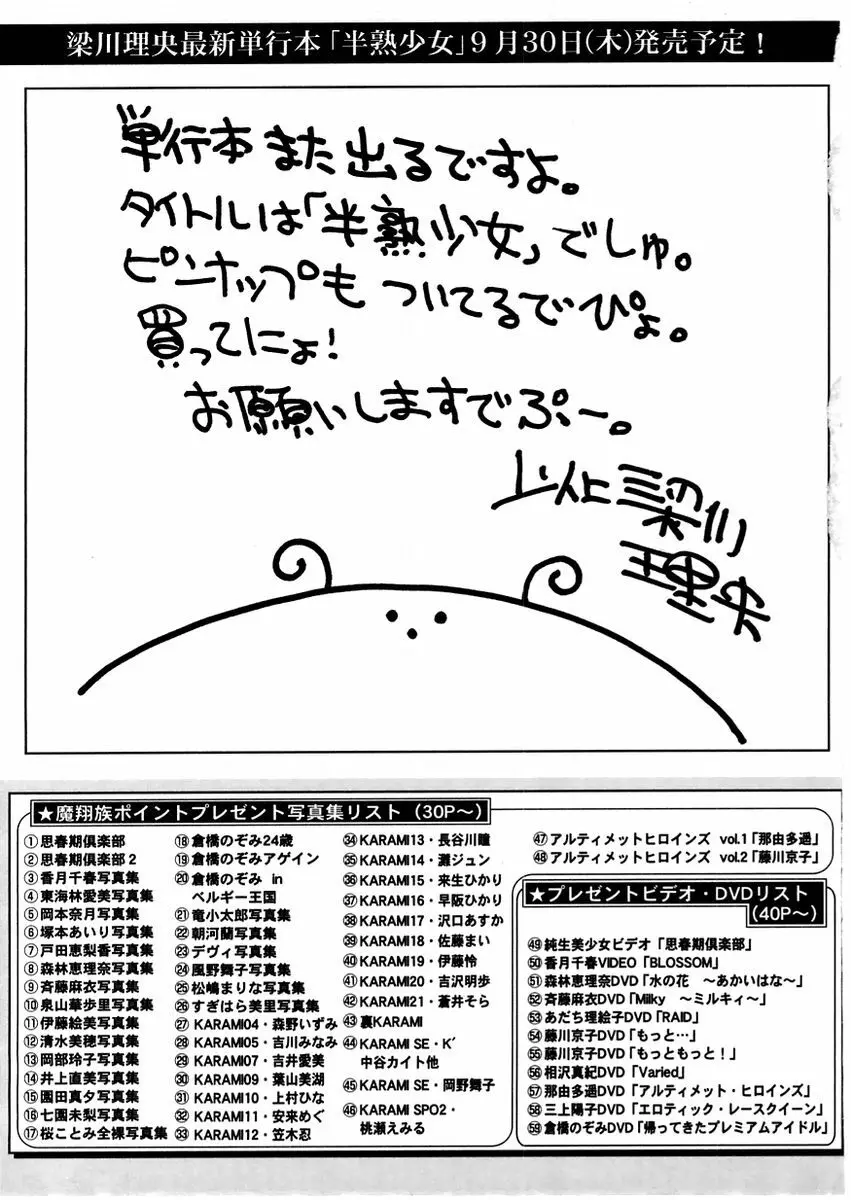 梁川理央最新単行本「半熟少女」9月30日(木)発売予定！
単行本また出るですよ。
タイトルは「半熟少女」でしゅ。
ピンナップもついてるでぴょ。
買ってにょ!
お願いしますでぷー。
以上 梁川
理央
★魔翔族ポイントプレゼント写真集リスト（30P〜）
①思春期倶楽部
②思春期倶楽部２
③香月千春写真集
④東海林愛美写真集
⑤岡本奈月写真集
⑥塚本あいり写真集
⑦戸田恵梨香写真集
⑧森林恵理奈写真集
⑨斉藤麻衣写真集
⑩泉山華歩里写真集
⑪伊藤絵美写真集
⑫清水美穂写真集
⑬岡部玲子写真集
⑭井上直美写真集
⑮園田真夕写真集
⑯七園未梨写真集
⑰桜ことみ全裸写真集
⑱倉橋のぞみ24歳
⑲倉橋のぞみアゲイン
⑳倉橋のぞみ in
ベルギー王国
㉑竜小太郎写真集
㉒朝河蘭写真集
㉓デヴィ写真集
㉔風野舞子写真集
㉕松嶋まりな写真集
㉖すぎはら美里写真集
㉗KARAMI04・森野いずみ
㉘KARAMI05・吉川みなみ
㉙KARAMI07・吉井愛美
㉚KARAMI09・葉山美湖
㉛KARAMI10・上村ひな
㉜KARAMI11・安来めぐ
㉝KARAMI12・笠木忍
㉞KARAMI13・長谷川瞳
㉟KARAMI14・灘ジュン
㊱KARAMI15・来生ひかり
㊲KARAMI16・早阪ひかり
㊳KARAMI17・沢口あすか
㊴KARAMI18・佐藤まい
㊵KARAMI19・伊藤怜
㊶KARAMI20・吉沢明歩
㊷KARAMI21・蒼井そら
㊸裏KARAMI
㊹KARAMI SE・K´
中谷カイト他
㊺KARAMI SE・岡野舞子
㊻KARAMI SPO2・
桃瀬えみる
㊼アルティメットヒロインズ vol.1「那由多遥」
㊽アルティメットヒロインズ vol.2「藤川京子」
★プレゼントビデオ・DVDリスト
（40P〜）
㊾純生美少女ビデオ「思春期倶楽部」
㊿香月千春VIDEO「BLOSSOM」
51森林恵理奈DVD「水の花 〜あかいはな〜」
52斉藤麻衣DVD「Milky 〜ミルキィ〜」
53あだち理絵子DVD「RAID」
54藤川京子DVD「もっと…」
55藤川京子DVD「もっともっと！」
56相沢真紀DVD「Varied」
57那由多遥DVD「アルティメット・ヒロインズ」
58三上陽子DVD「エロティック・レースクイーン」
59倉橋のぞみDVD「帰ってきたプレミアムアイドル」